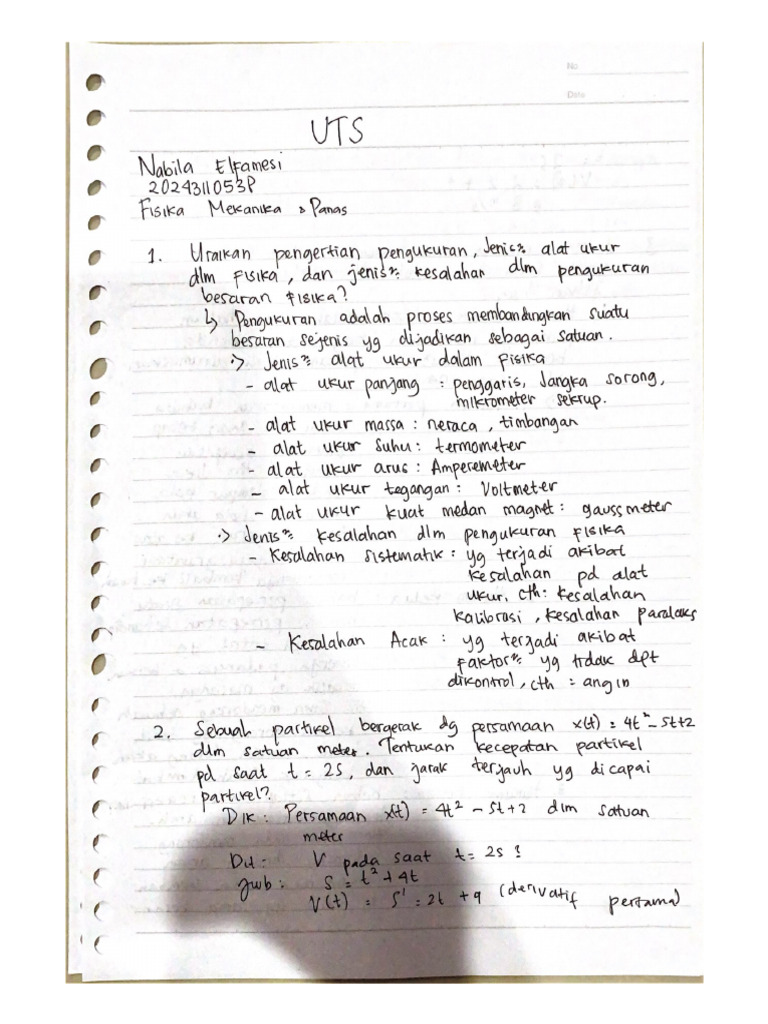 No
Date
UTS
Nabila Elfamesi
2024311053P
Fisika Mekanika & Panas
1. Uraikan pengertian pengukuran, Jenis² alat ukur
dlm fisika, dan jenis² kesalahan dlm pengukuran
besaran fisika?
↳ Pengukuran adalah proses membandingkan suatu
besaran sejenis yg dijadikan sebagai satuan.
·> Jenis² alat ukur dalam fisika
- alat ukur panjang : penggaris, Jangka sorong,
mikrometer sekrup.
- alat ukur massa : neraca, timbangan
- alat ukur suhu : termometer
- alat ukur arus : Amperemeter
- alat ukur tegangan : Voltmeter
- alat ukur kuat medan magnet : gaussmeter
·> Jenis² kesalahan dlm pengukuran fisika
- Kesalahan sistematik : yg terjadi akibat
kesalahan pd alat
ukur, cth : kesalahan
kalibrasi, kesalahan paralaks
- Kesalahan Acak : yg terjadi akibat
faktor² yg tidak dpt
dikontrol, cth = angin
2. Sebuah partikel bergerak dg persamaan x(t) = 4t² - 5t+2
dlm satuan meter. Tentukan kecepatan partikel
pd saat t = 2s, dan jarak terjauh yg dicapai
partikel?
Dik : Persamaan x(t) = 4t² - 5t+2 dlm satuan
meter
Dit : V pada saat t = 2s ?
Jwb : S = t² + 4t
V(t) = S' = 2t + 4 (derivatif pertama)